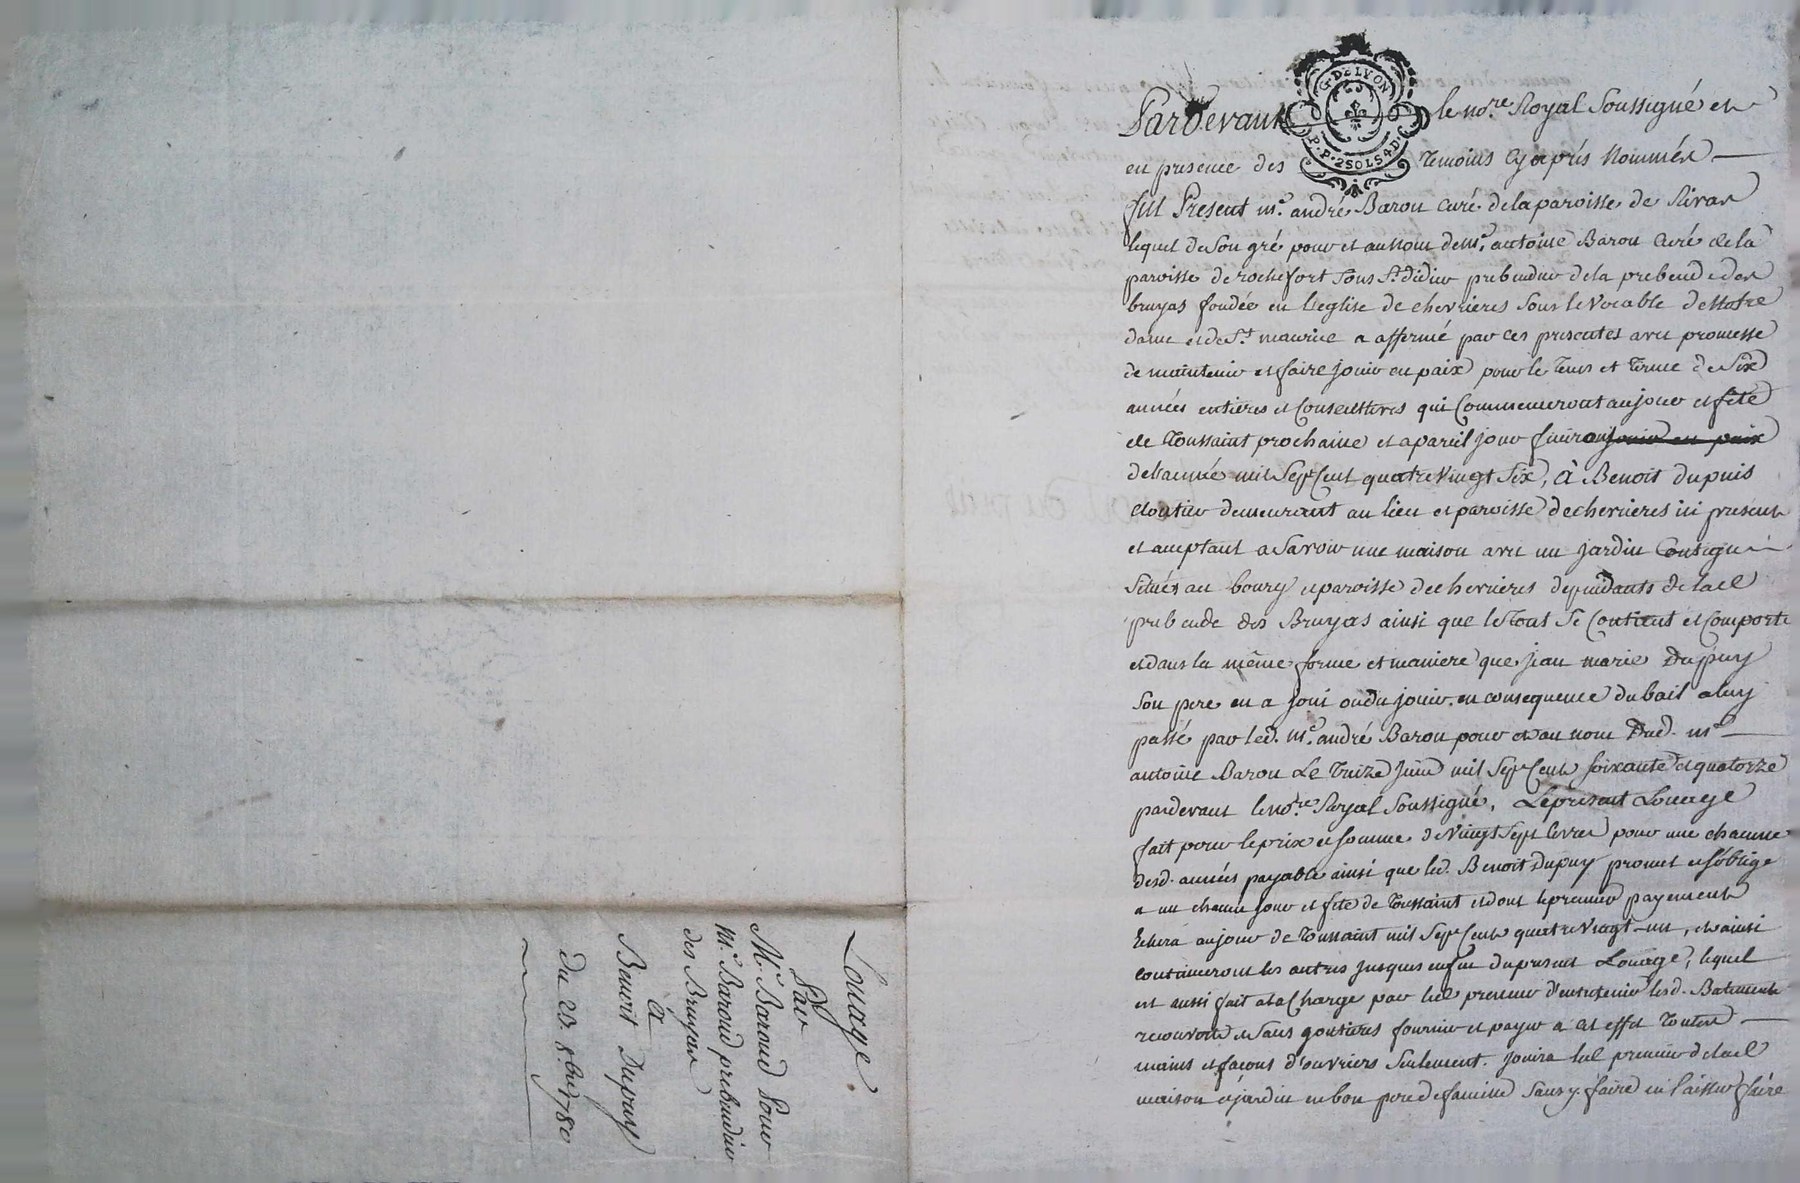 G. DE LYON
P.P. 2 SOLS 4 D.
Pardevant le nore. Royal Soussigné et
en presence des temoins cy après nommés
fut Present me. andré Baron curé de la paroisse de Rivas
lequel de Son gré pour et au nom de me. antoine Baron curé de la
paroisse de rochefort Sous St. didier prebendier de la prebende des
bruyas fondée en l'eglise de chevrieres Sous le vocable de Notre
dame et de St. maurice a affermé par ces presentes avec promesse
de maintenir et faire jouir en paix pour le tems et terme de Six
années entieres et Consecutives qui Commenceront au jour et fête
de Toussaint prochaine et a pareil jour finiront jouir en paix
de l'année mil Sept Cent quatre vingt Six, à Benoit dupuis
cloutier demeurant au lieu et paroisse de chevrieres ici présent
et acceptant a Savoir une maison avec un jardin Contigu
Situés au bourg et paroisse de chevrieres dependants de lad
prebende des Bruyas ainsi que le tout Se Contient et Comporte
et dans la même forme et maniere que jean marie Dupuy
Son pere en a joui ou du jouir en consequence du bail a luy
passé par led. me. andré Baron pour et au nom Dud. me
antoine Baron Le treize juin mil Sept Cent Soixante et quatorze
pardevant le nore. Royal Soussigné, Le présent Louage
fait pour le prix et Somme de Vingt Sept livres pour une chacune
desd. années payable ainsi que led. Benoit Dupuy promet et s'oblige
a un chacun jour et fete de Toussaint et dont le premier payement
Echera au jour de Toussaint mil Sept Cent quatre Vingt un, et ainsi
continueront les autres jusques en fin du present Louage, lequel
est aussi fait a la Charge par led preneur d'entretenir lesd. Batiments
recouverts et Sans goutieres fournir et payer a cet effet Toutes
mains et façons d'ouvriers Seulement. jouira led preneur de lad
maison et jardin en bon pere de famille Sans y faire ni laisser faire
Louage.
Par
Mr. Baroud Pour
Mr. Baroud prebendier
des Bruyas
à
Benoit Dupuy
Du 20. 8bre 1780